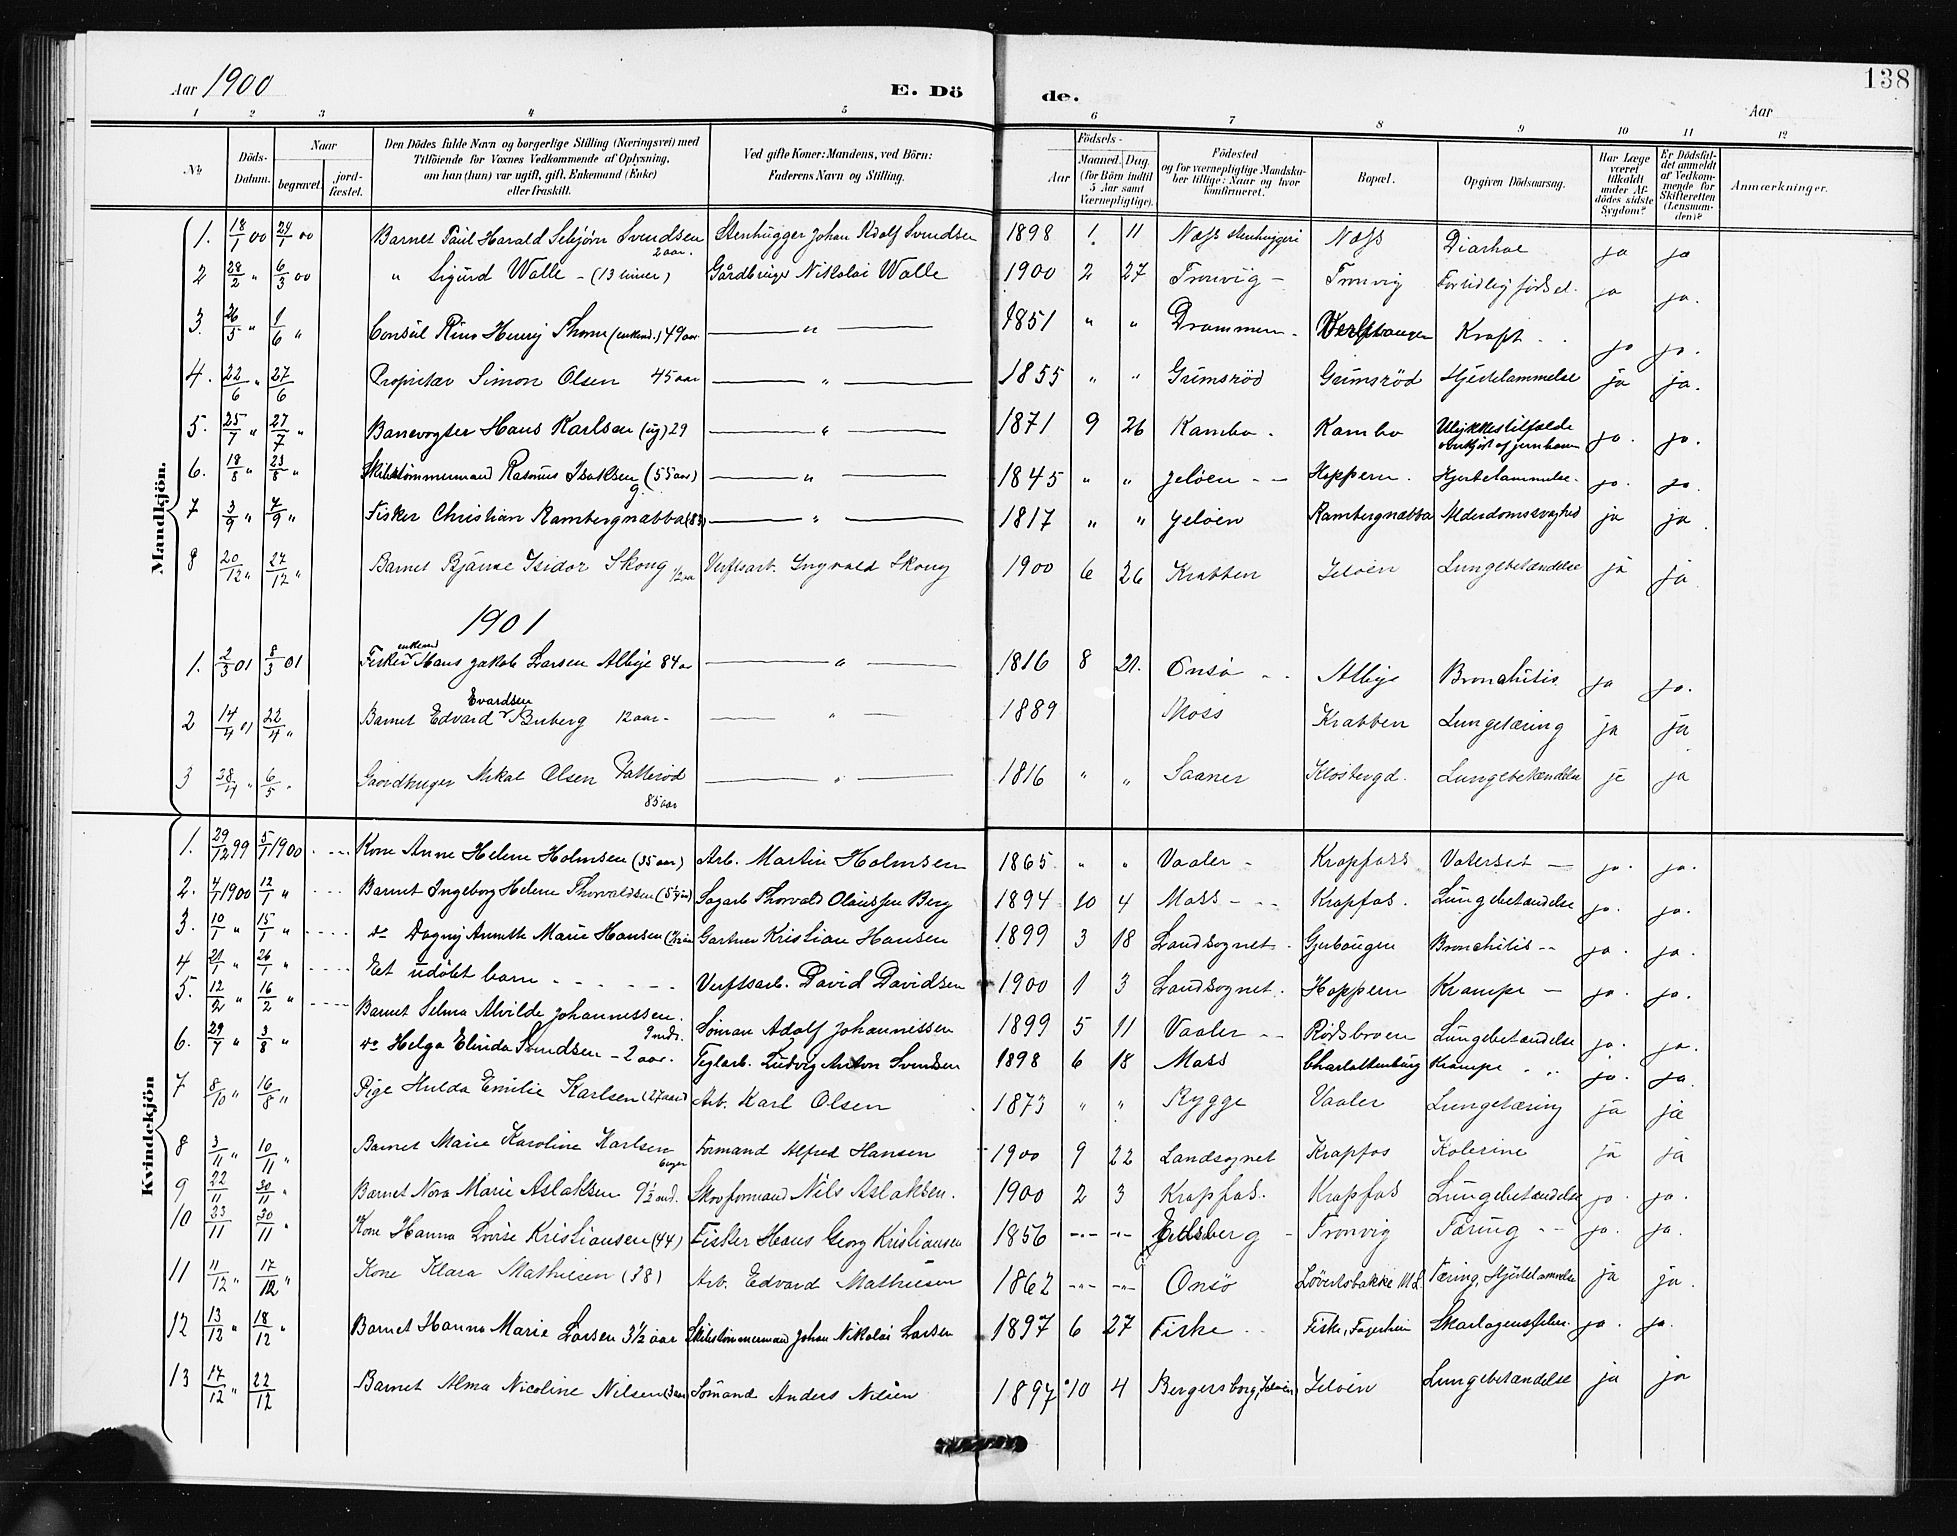 138
Aar 1900 E. Dö de. Aar
1 2 3 4 5 6 7 8 9 10 11 12
No. Döds-Datum. Naar begravet. jord-fæstet. Den Dödes fulde Navn og borgerlige Stilling (Næringsvei) med Tilföiende for Voxnes Vedkommende af Oplysning, om han (hun) var ugift, gift, Enkemand (Enke) eller fraskilt. Ved gifte Koner: Mandens, ved Börn: Faderens Navn og Stilling. Födsels- Aar Maaned. Dag. (for Börn indtil 5 Aar samt Værnepligtige). Födested og for værnepligtige Mandskaber tillige: Naar og hvor konfirmeret. Bopæl. Opgiven Dödsaarsag. Har Læge været tilkaldt under Afdödes sidste Sygdom? Er Dödsfaldet anmeldt af Vedkommende for Skifteretten (Lensmanden)? Anmærkninger.
Mandkjön.
1. 18/1 00 24/1 00 Barnet Paul Harald Svendsen 2 aar. Stenhugger Johan Adolf Svendsen 1898 1. 11 Næss stenhuggeri Næss Diarhoe ja ja
2 28/2 " 6/3 00 " Sigurd Walle - (13 timer) Gårdbruger Nikolai Walle 1900 2 27 Tronvig - Tronvig For tidlig födsel. ja ja.
3. 26/5 " 1/6 " Consul Henry Thorne (enkem.) 49 aar " 1851 " " Drammen - Kraft - . ja ja.
4. 22/6 " 27/6 Proprietær Simon Olsen 45 aar " 1855 " " Grimsröd Grimsröd Hjertelammelse ja ja.
5. 25/7 " 27/7 " Banevogter Hans Karlsen (ug) 29 " 1871 9 26 Kambo - Kambo Ulykkestilfælde overkjört af jernbanen ja. ja.
6. 18/8 " 23/8 " Skibstömmermand Rasmus Isaksen g. (55 aar) " 1845 " " Jelöen - - Hoppern. Hjertelammelse. ja. ja.
7 3/9 " 7/9 " Fisker Christian Rambergnabba (83) " 1817 " " Jelöen Rambergnabba Alderdomssvaghed ja ja
8 20/12 " 27/12 " Barnet Bjarne Isidor Skoug 1/2 aar Verftsarb. Ingvald Skoug 1900 6 26 Krabben Jelöen Lungebetændelse ja ja
1901
1. 2/3 01 8/3 01 Fisker enkem Hans Jakob Larsen Alby 84 aar " 1816 8 21. Onsö - - Alby Bronchitis ja ja.
2 14/4 01 22/4 " Barnet Edvard Evardsen Buberg 12 aar - " 1889 Moss Krabben Lungetæring ja ja
3 28/4 " 6/5 " Gaardbruger Mikal Olsen 85 aar " 1816 " " Saaner Klostergd. Lungebetændelse ja ja
Kvindekjön
1. 29/12 99 5/1 1900 Kone Anne Helene Holmsen (35 aar) Arb. Martin Holmsen 1865 " " Vaaler - Krapfoss Vatersot - ja. ja.
2. 4/1 1900 12/1 " Barnet Ingeborg Helene Thorvaldsen Sagarb Thorvald Olaussen Berg 1894 10 4 Moss - - Krapfos. Lungebetændelse ja. ja.
3. 10/1 " 15/1 " do Dagny Annette Marie Hansen Gartner Kristian Hansen 1899 3 18 Landsognet - Bronchitis - - ja. ja.
4 21/1 " 26/1 " Et udöbt barn Verftsarb. David Davidsen 1900 1 3 Landsognet. Hoppern Krampe - ja. ja.
5. 12/2 " 16/2 " Barnet Selma Alvilde Johannessen. 9 mdr. Sömand Adolf Johannissen 1899 5 11 Vaaler - - Rödsbroen Lungebetændelse ja. ja.
6. 29/7 " 3/8 " do Helga Elinda Svendsen - 2 aar. Teglarb. Ludvig Anton Svendsen 1898 6 18 Moss Charlottenburg Krampe " " ja. ja.
7 8/10 " 16/8 " Pige Hulda Emilie Karlsen (27 aar) Arb. Karl Olsen 1873 " " Rygge Vaaler Lungetæring ja ja
8 3/11 " 10/11 " Barnet Marie Karoline Karlsen 6 uger Formand Alfred Hansen 1900 9 22 Landsognet Krapfos Kolerine ja ja
9 22/11 30/11 " Barnet Nora Marie Aslaksen 9 1/2 md. Skovformand Nils Aslaksen. 1900 2 3 Krapfos. Krapfos Lungebetændelse ja. ja.
10 23/11 30/11 " Kone Hanna Lovise Kristiansen (44) Fisker Hans Georg Kristiansen 1856 -"- -"- Eidsberg - Tronvig Tæring - - ja. ja.
11 11/12 " 17/12 " Kone Klara Mathiesen (38) Arb. Edvard Mathiesen 1862 -"- -"- Onsö Tæring, Hjertelammelse ja ja.
12 13/12 " 18/12 " Barnet Hanna Marie Larsen 3 1/2 aar Skibstömmermand Johan Nikolai Larsen 1897 6 27 Fiske - - Fiske, Fagerheim Skarlagensfeber. ja. ja.
13 17/12 " 22/12 Barnet Alma Nicoline Nilsen (3 aar) Sömand Anders Nilsen 1897 10 4 Bergersborg, Jelöen Jelöen Lungebetændelse ja ja